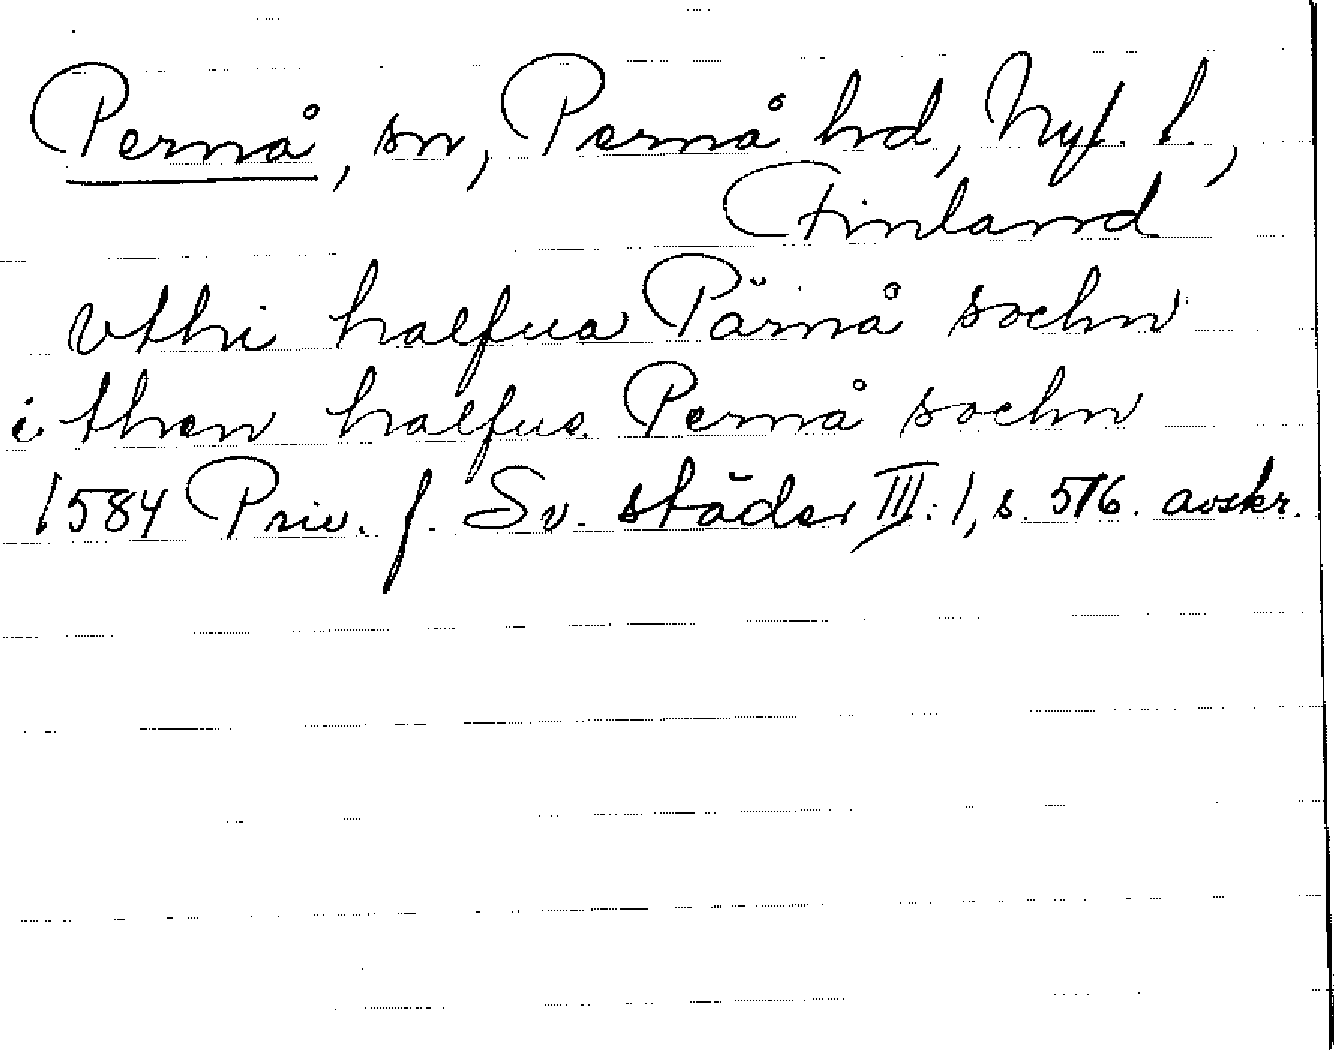 Pernå, sn, Pernå hd, Nyl. l.,
Finland
vthi halfua Pärnå sochn
i then halfue Pernå sochn
1584 Priv. f. Sv. städer III: 1, s. 516. avskr.